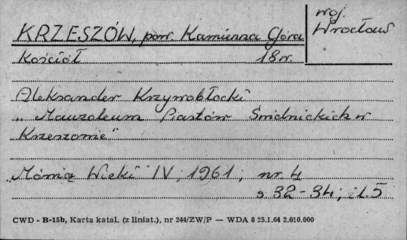 KRZESZÓW, pow. Kamienna Góra
woj. Wrocław
Kościół 18w.
Aleksander Krzywobłocki
"Mauzoleum Piastów Świdnickich w
Krzeszowie"
"Mówią Wieki" IV; 1961; nr. 4
s. 32-34; il. 5
CWD - B-15b, Karta katal. (z liniat.), nr 244/ZW/P — WDA 8 25.1.64 2.010.000